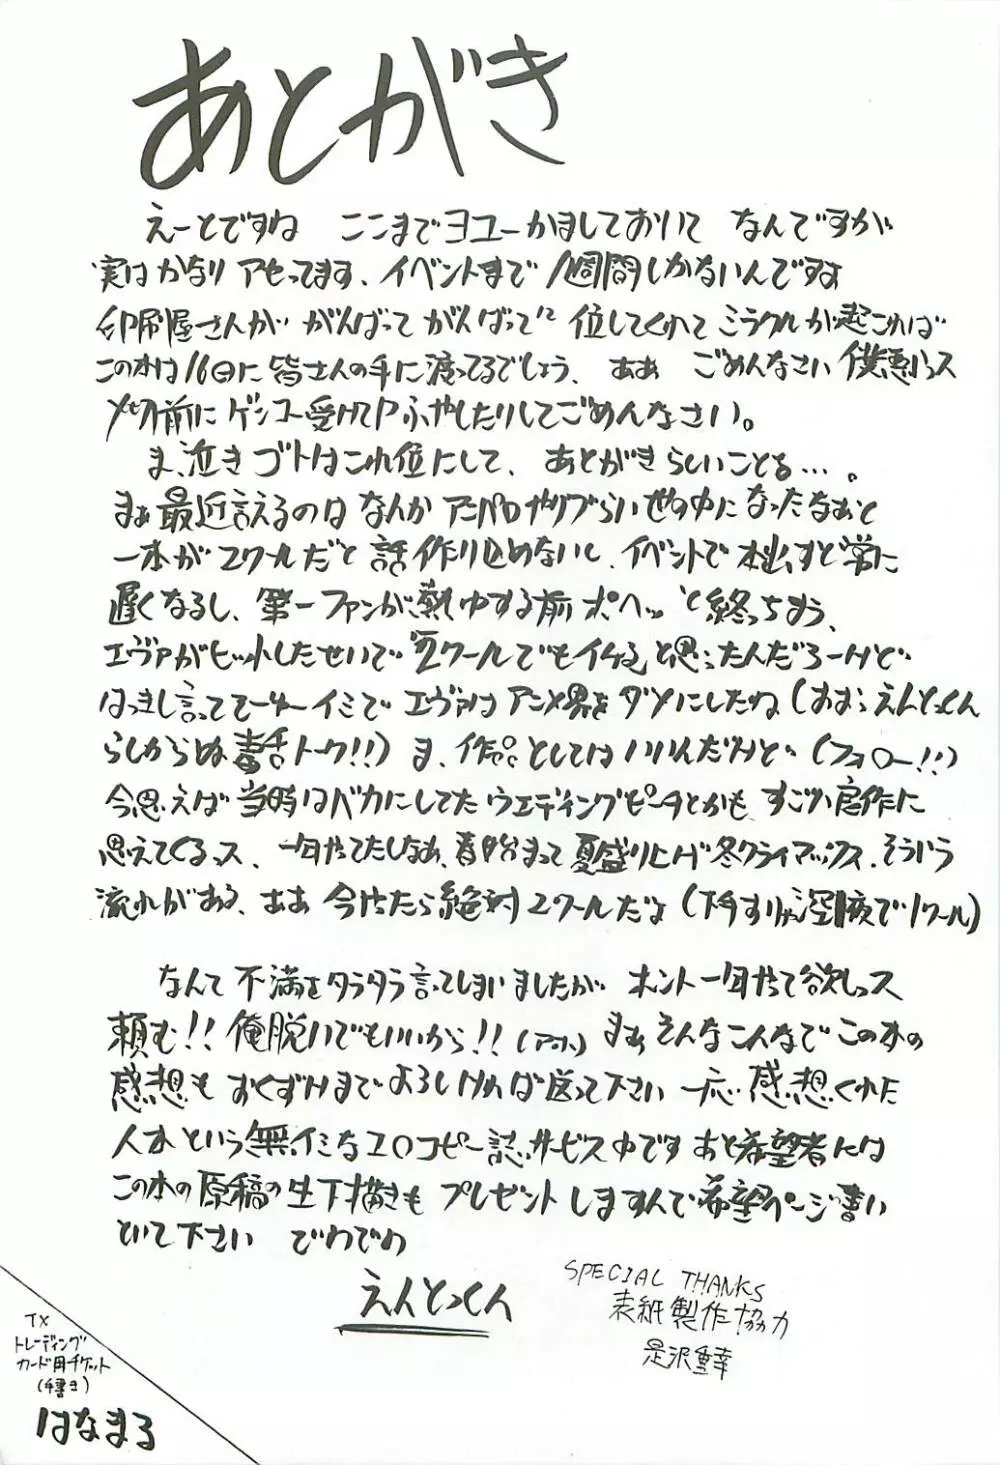 あとがき
えーとですね ここまでヨユーかましておいて なんですが
実はかなりアセってます、イベントまで1週間しかないんですよ
印刷屋さんが がんばってがんばって 位してくれて ミラクルが起これば
この本は16日に皆さんの手に渡ってるでしょう、ああ ごめんなさい 僕悪いっス
〆切前にゲンコー受けてPふやしたりしてごめんなさい。
ま、泣きゴトはこれ位にして、あとがきらしいことを…。
まぁ最近言えるのは なんか アニパロやりづらい世の中になったなぁと
一本が2クールだと 話作り込めないし、イベントで本出すと常に
遅くなるし、第一ファンが熱中する前 ポヘッ と終っちまう、
エヴァがヒットしたせいで "2クールでもイケる"と思ったんだろーけど
はっきし言ってそーゆーイミで エヴァは アニメ界をダメにしたね(おおっ えんとっくん
らしからぬ毒舌トーク!!)ま、作品としてはいいんだけど(フォロー!!)
今思えば 当時はバカにしてたウエディングピーチとかも すごい良作に
思えてくるっス、一年やってたしなぁ、春始まって夏盛り上げ冬クライマックス、そういう
流れがある、ああ 今やったら絶対2クールだよ(下手すりゃ深夜で1クール)
なんて不満をタラタラ言ってしまいましたが ホント一年やって欲しっス
頼む!!俺脱いでもいいから!!(アホ) まぁそんなこんなで この本の
感想も おくずけまで よろしければ送って下さい 一応 感想くれた
人本という無イミなエロコピー誌サービス中です あと希望者には
この本の原稿の生下描きも プレゼントしますんで希望ページ書い
といて下さい でわでわ
えんとっくん
SPECIAL THANKS
表紙製作協力
是沢重幸
TX
トレーディング
カード用チケット
(手書き)
はなまる